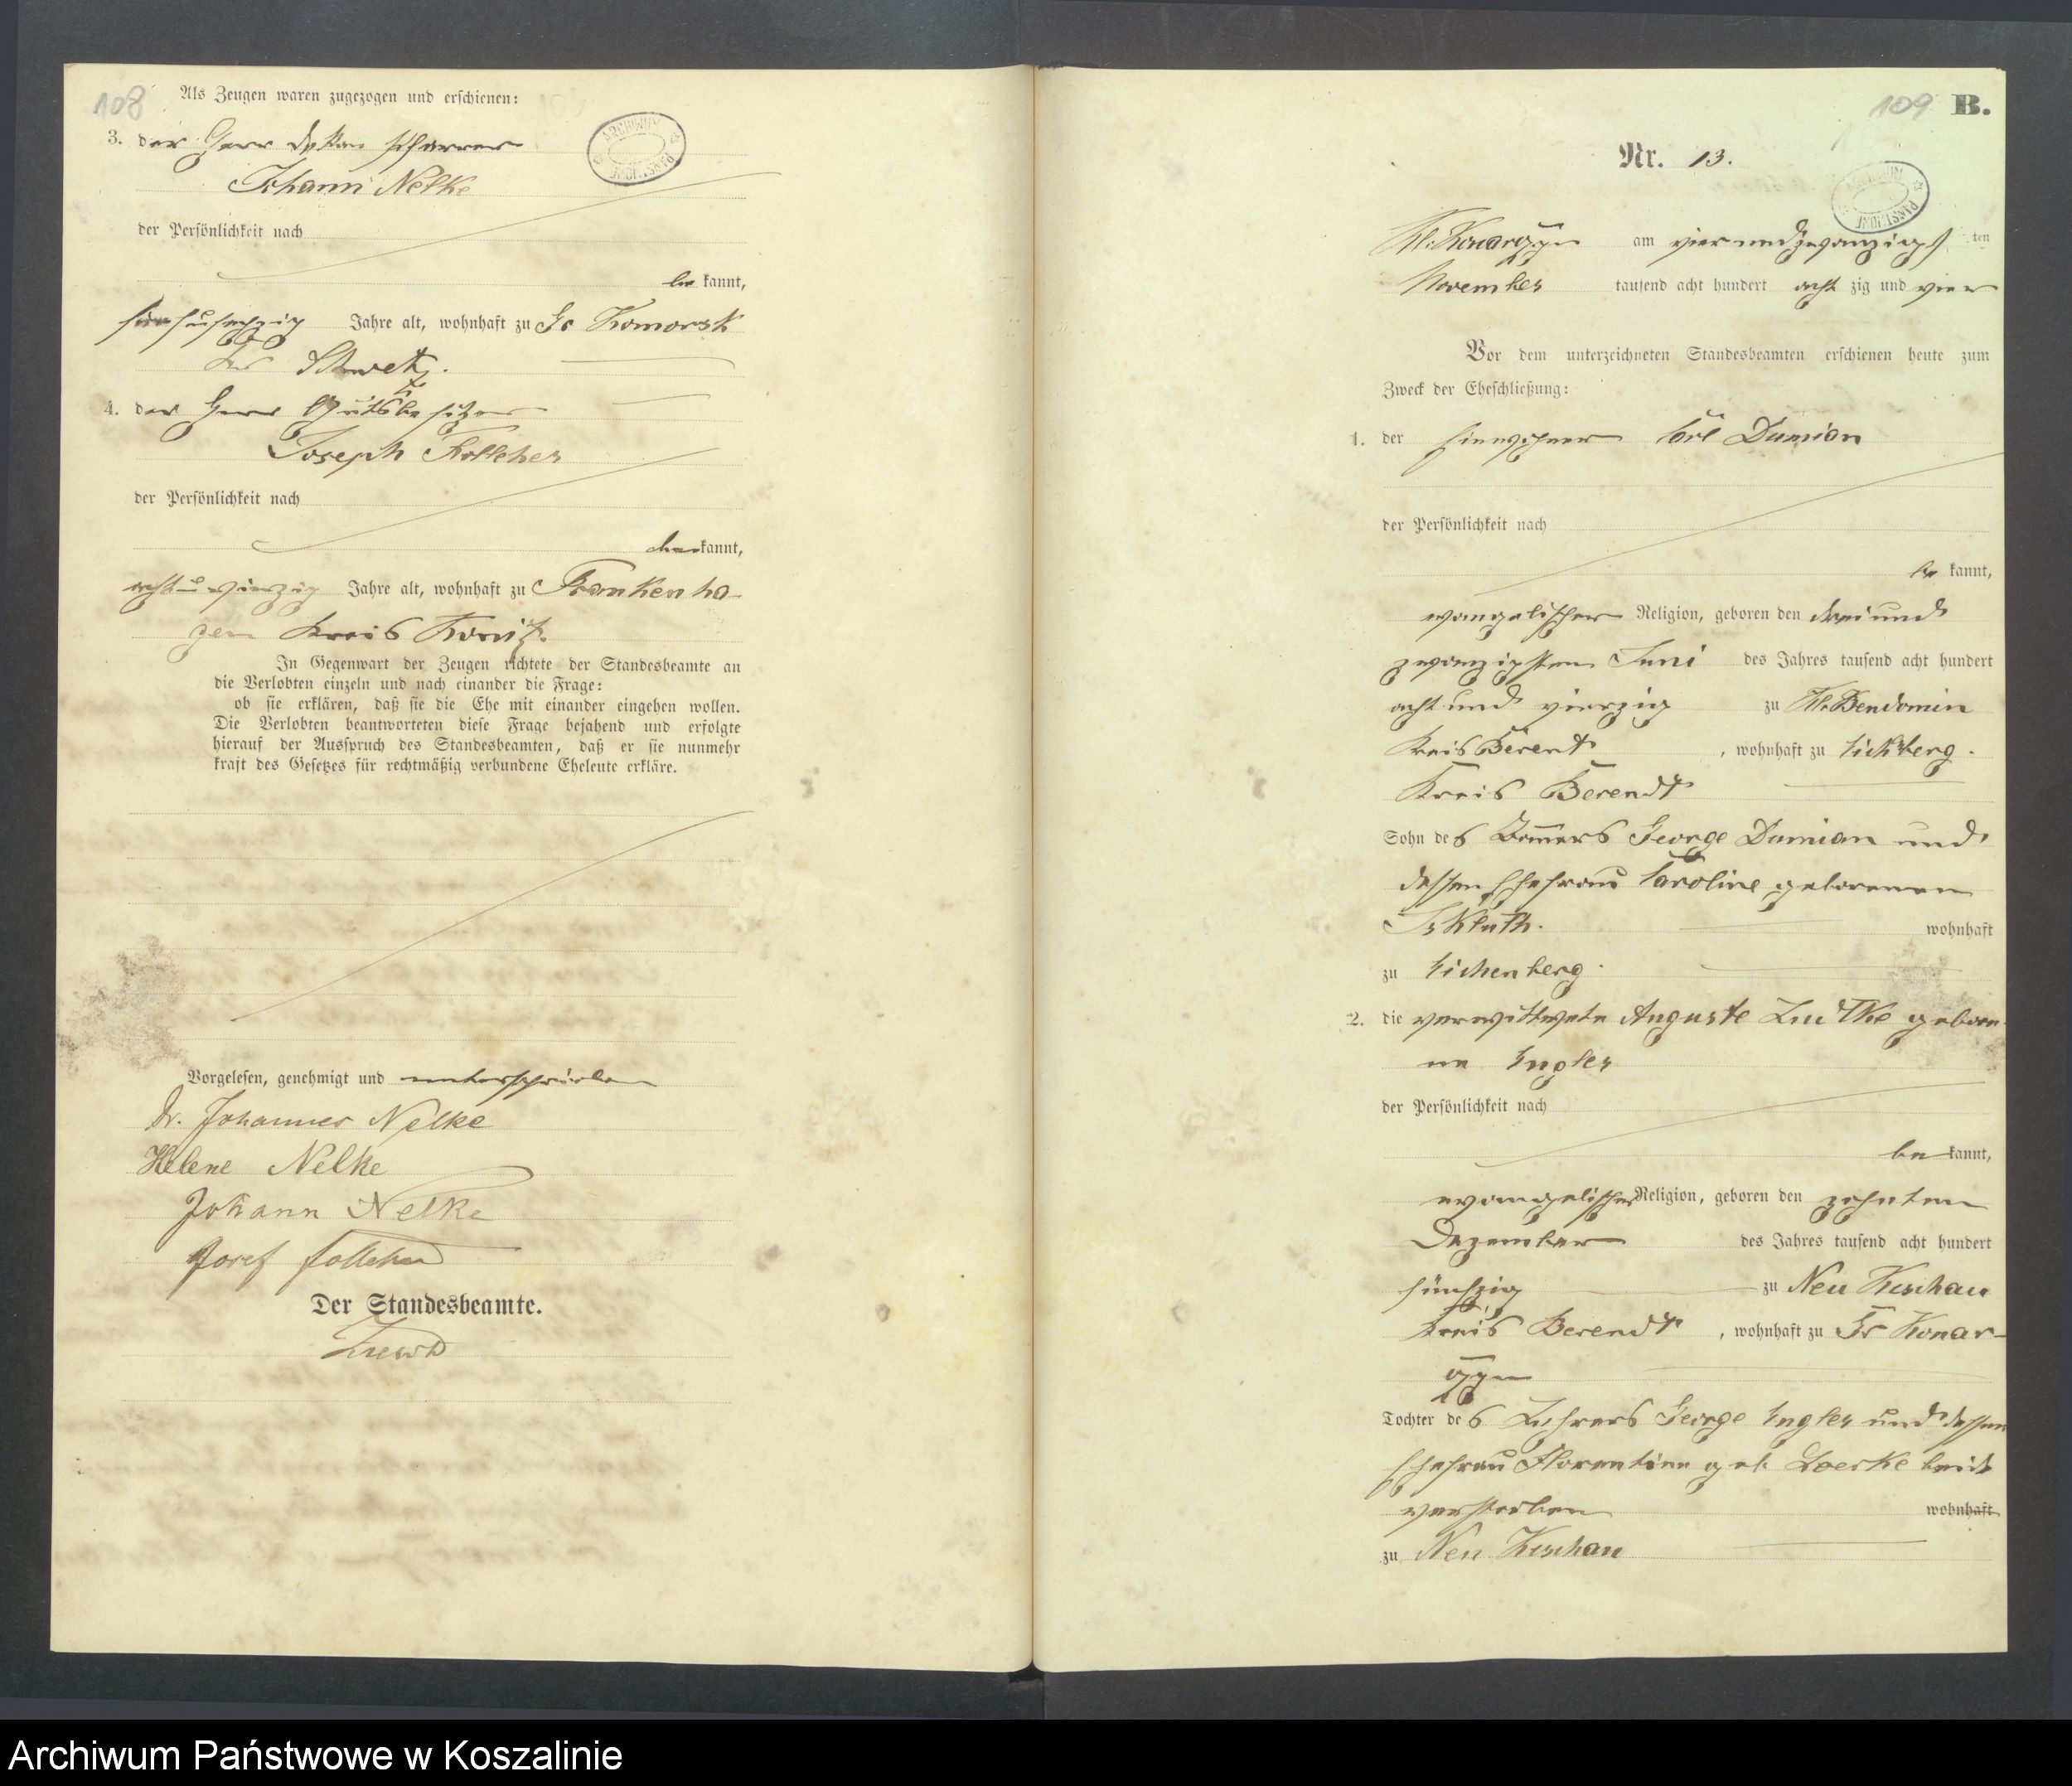 108
Als Zeugen waren zugezogen und erschienen:
3. der Herr Dekan Pfarrer
Johann Nelke
der Persönlichkeit nach
be kannt,
Jahre alt, wohnhaft zu Gr Komorsk
Schwetz.
4. der Herr Gutsbesitzer
Joseph Follcher
der Persönlichkeit nach
be kannt,
acht u vierzig Jahre alt, wohnhaft zu Frankenha-
gen Kreis Konitz.
In Gegenwart der Zeugen richtete der Standesbeamte an
die Verlobten einzeln und nach einander die Frage:
ob sie erklären, daß sie die Ehe mit einander eingehen wollen.
Die Verlobten beantworteten diese Frage bejahend und erfolgte
hierauf der Ausspruch des Standesbeamten, daß er sie nunmehr
kraft des Gesetzes für rechtmäßig verbundene Eheleute erkläre.
Vorgelesen, genehmigt und unterschrieben
Dr. Johannes Nelke
Helene Nelke
Johann Nelke
Josef
Der Standesbeamte.
109 B.
Nr. 13.
Kl. Konarczyn am vierundzwanzigst ten
November tausend acht hundert acht zig und vier
Vor dem unterzeichneten Standesbeamten erschienen heute zum
Zweck der Eheschließung:
1. der Einwohner Carl Damian
der Persönlichkeit nach
be kannt,
evangelischer Religion, geboren den dreiund
zwanzigsten Juni des Jahres tausend acht hundert
acht und vierzig zu Kl. Bendomin
Kreis Berent, wohnhaft zu Eichberg.
Kreis Berendt
Sohn des George Damian und
dessen Ehefrau Caroline geborenen
wohnhaft
zu Eichenberg.
2. die verwittwete Auguste Ludtke gebore-
ne Engler
der Persönlichkeit nach
be kannt,
evangelischer Religion, geboren den zehnten
Dezember des Jahres tausend acht hundert
fünfzig zu Neu Kischau
Kreis Berendt, wohnhaft zu Gr Konar-
czyn
Tochter des Lehrers George Engler und dessen
Ehefrau Florentine geb. Goerke beide
verstorben wohnhaft
zu Neu Kischau
Archiwum Państwowe w Koszalinie